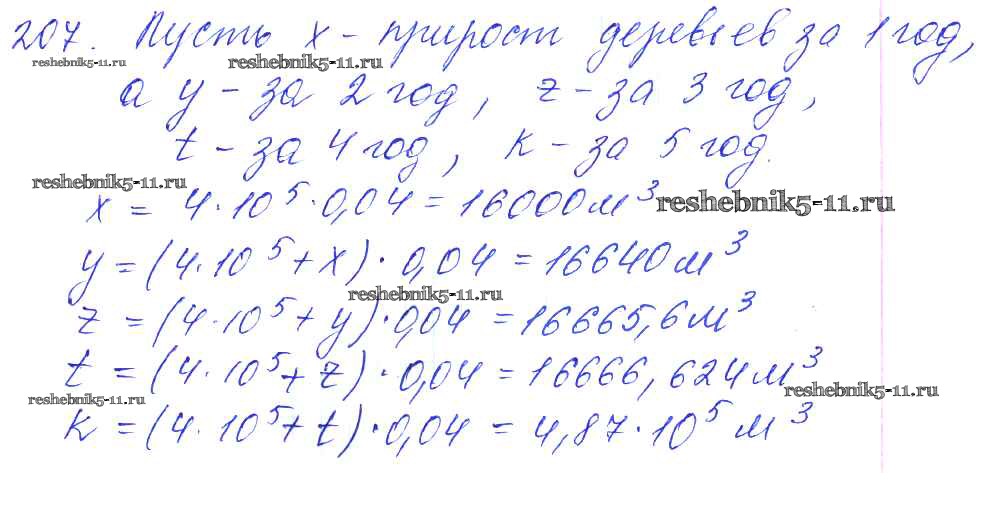 207. Пусть x - прирост деревьев за 1 год,
reshebnik5-11.ru reshebnik5-11.ru
а y - за 2 год, z - за 3 год,
t - за 4 год, k - за 5 год.
reshebnik5-11.ru
x = 4·10⁵·0,04 = 16000 м³ reshebnik5-11.ru
y = (4·10⁵ + x)·0,04 = 16640 м³
reshebnik5-11.ru
z = (4·10⁵ + y)·0,04 = 16665,6 м³
t = (4·10⁵ + z)·0,04 = 16666,624 м³
reshebnik5-11.ru reshebnik5-11.ru
k = (4·10⁵ + t)·0,04 = 4,87·10⁵ м³